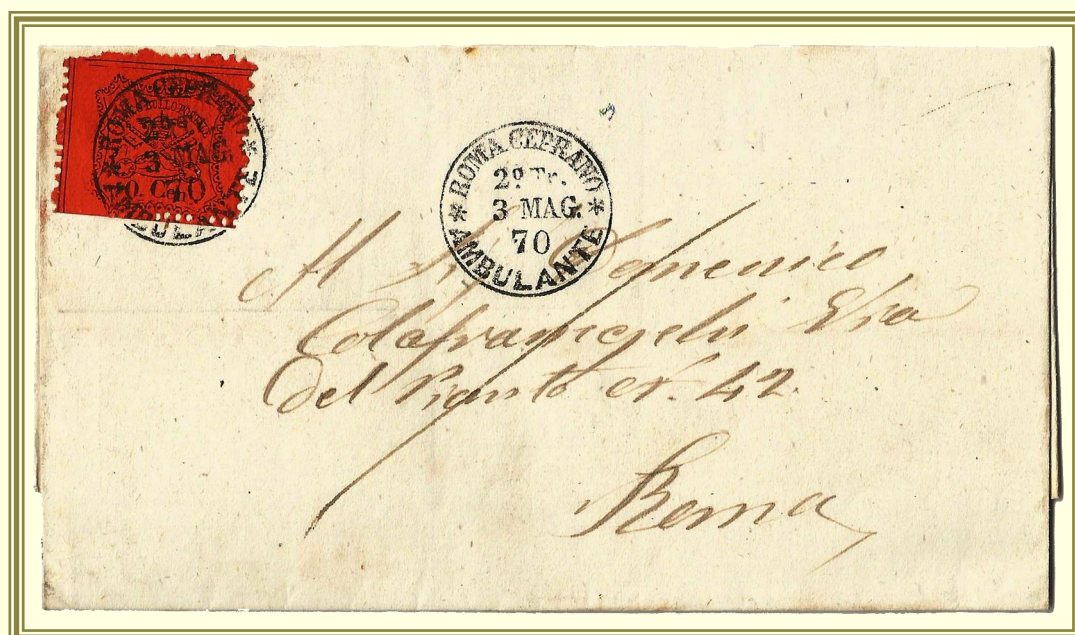 ROMA CEPRANO
2º Tr.
3 MAG.
70
AMBULANTE
ROMA CEPRANO
2º Tr.
3 MAG.
70
AMBULANTE
Al Sig Domenico
Colafranceschi Via
del Pianto N. 42
Roma